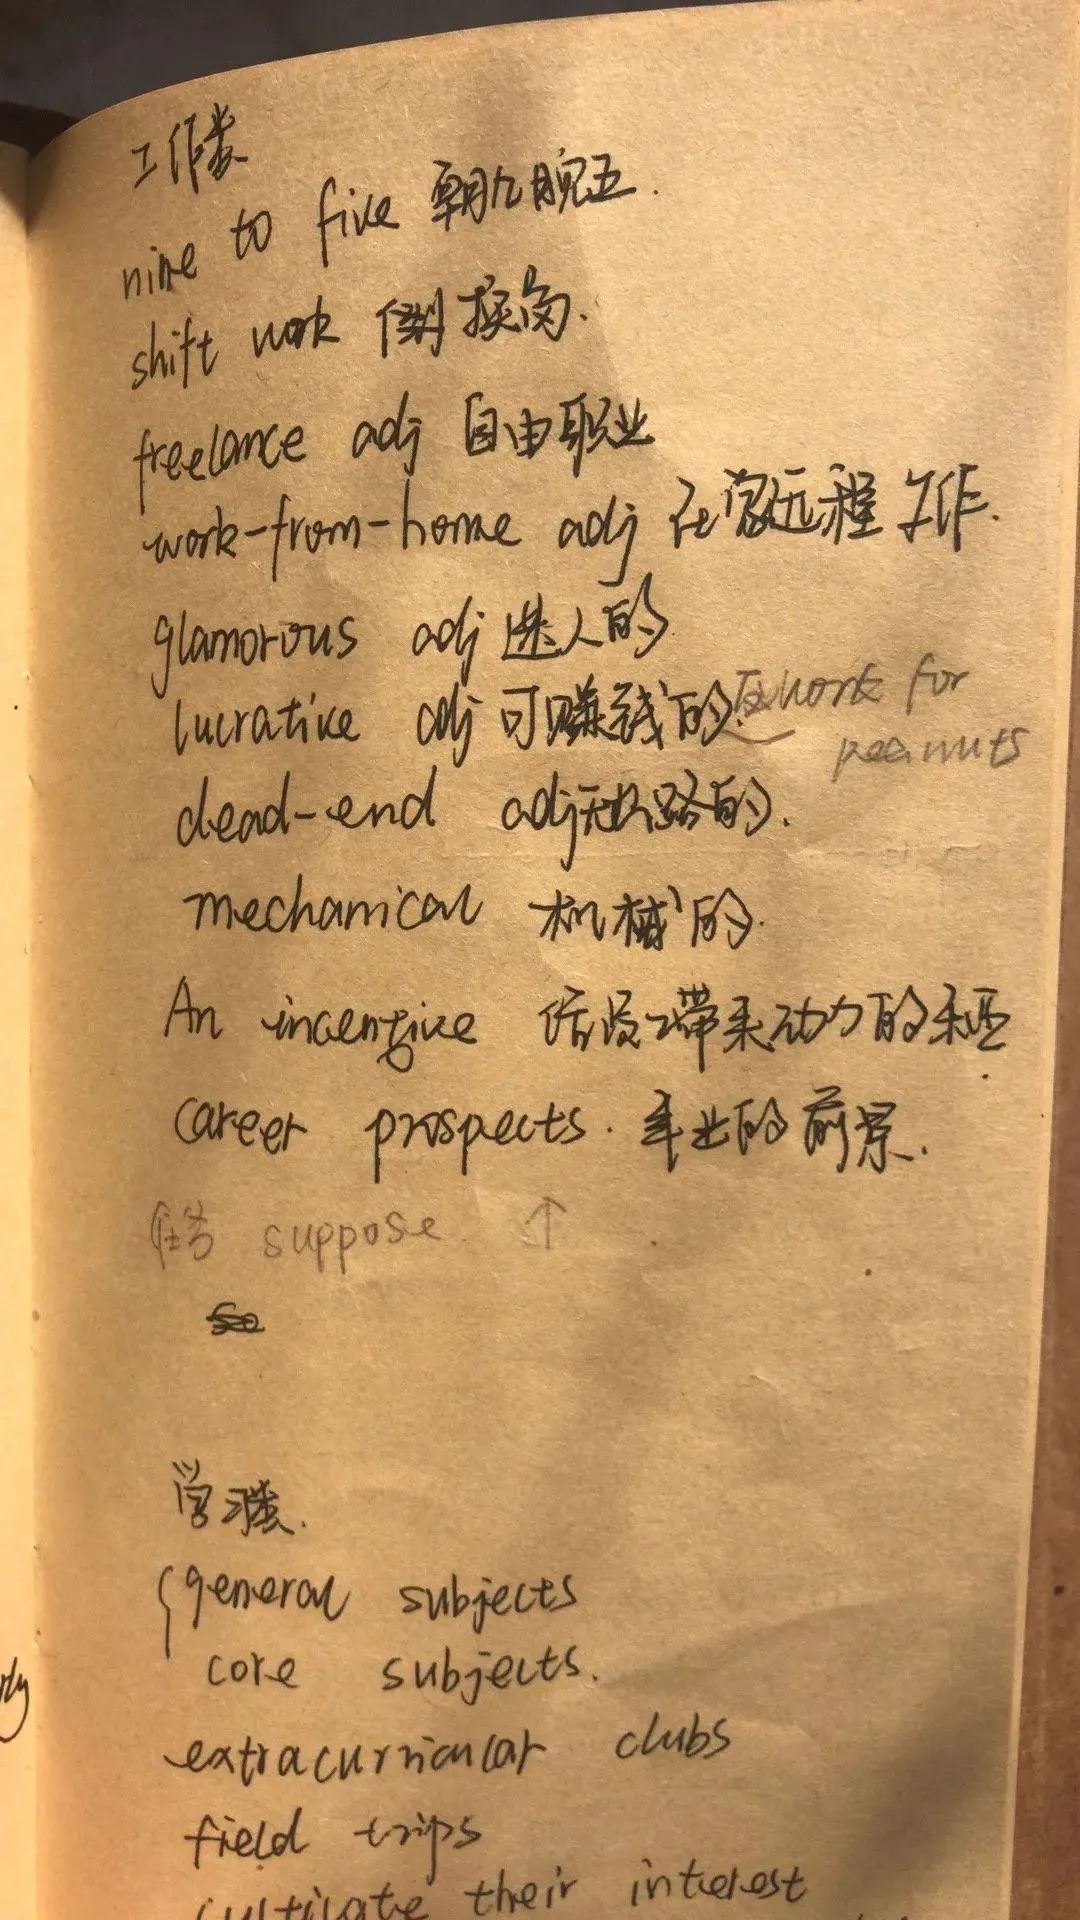 工作类
nine to five 朝九晚五.
shift work 倒换岗.
freelance adj 自由职业
work-from-home adj 在家远程工作.
glamorous adj 迷人的
lucrative adj 可赚钱的 反 work for
peanuts
dead-end adj 无出路的.
mechanical 机械的.
An incentive 带来动力的
career prospects. 事业的前景.
suppose ↑
学习类.
{general subjects
core subjects.
extracurricular clubs
field trips
cultivate their interest